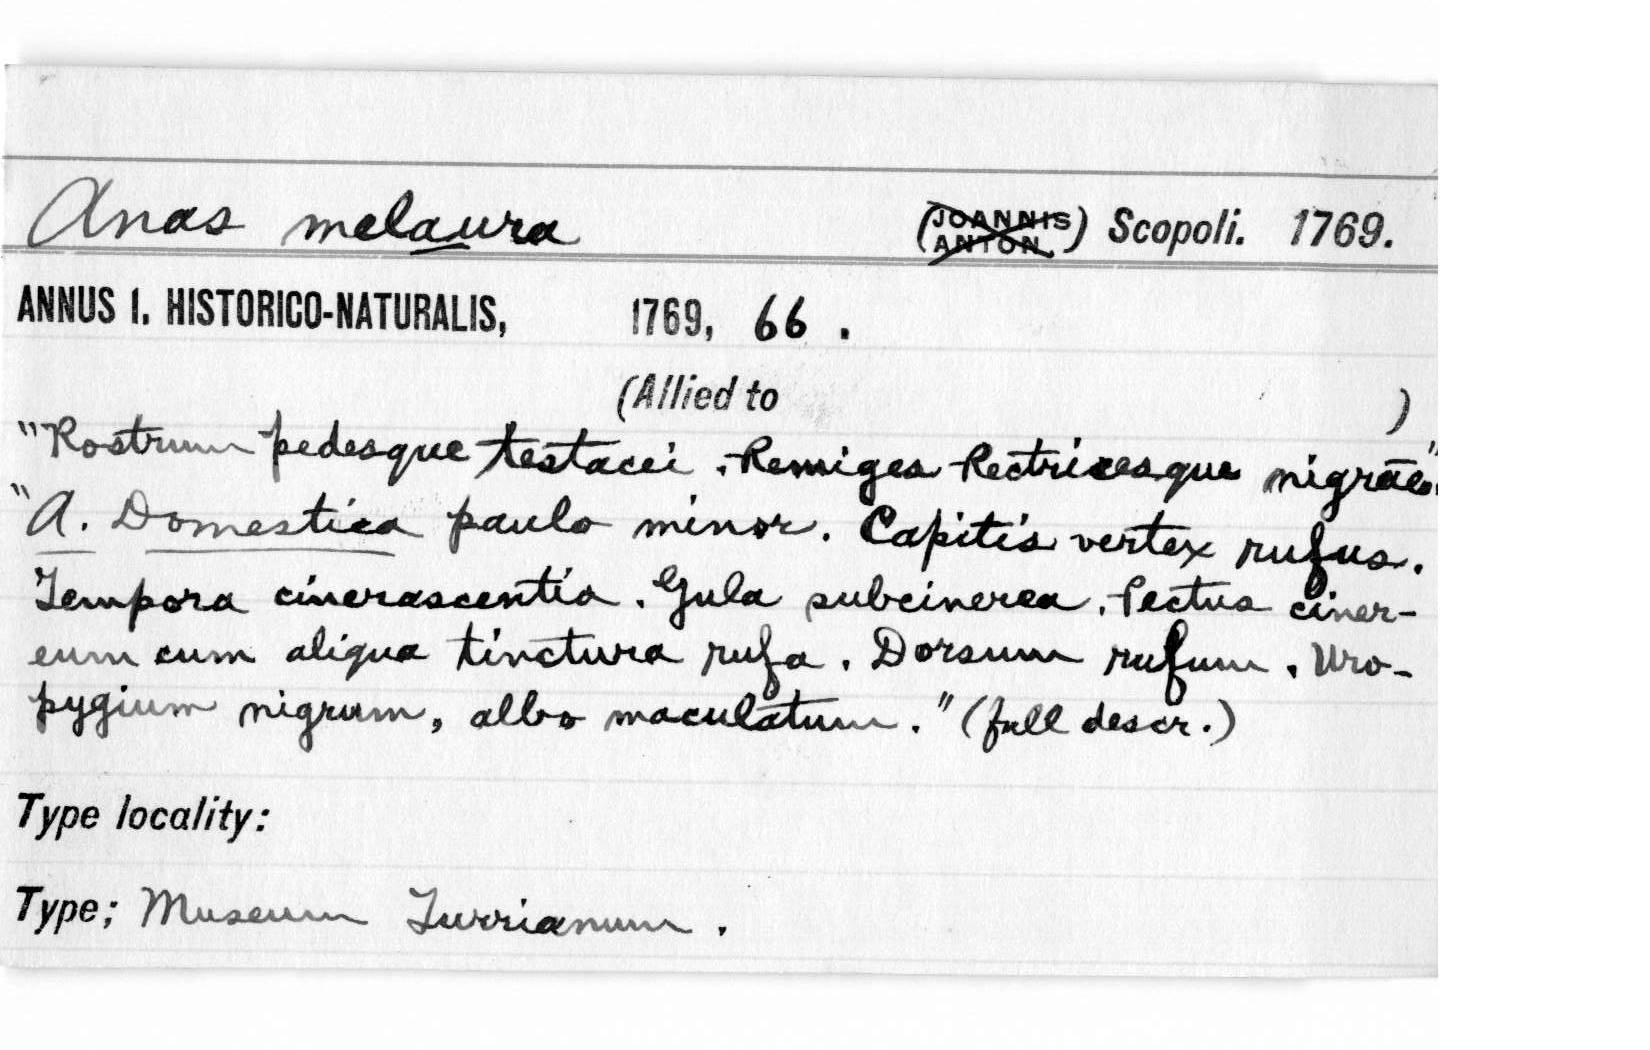 Anas melaura (JOANNIS ANTON.) Scopoli. 1769.
ANNUS I. HISTORICO-NATURALIS, 1769, 66.
(Allied to )
"Rostrum pedesque testacei. Remiges Rectricesque nigrae".
"A. Domestica paulo minor. Capitis vertex rufus.
Tempora cinerascentia. Gula subcinerea. Pectus ciner-
eum cum aliqua tinctura rufa. Dorsum rufum. Uro-
pygium nigrum, albo maculatum." (full descr.)
Type locality:
Type; Museum Turrianum.